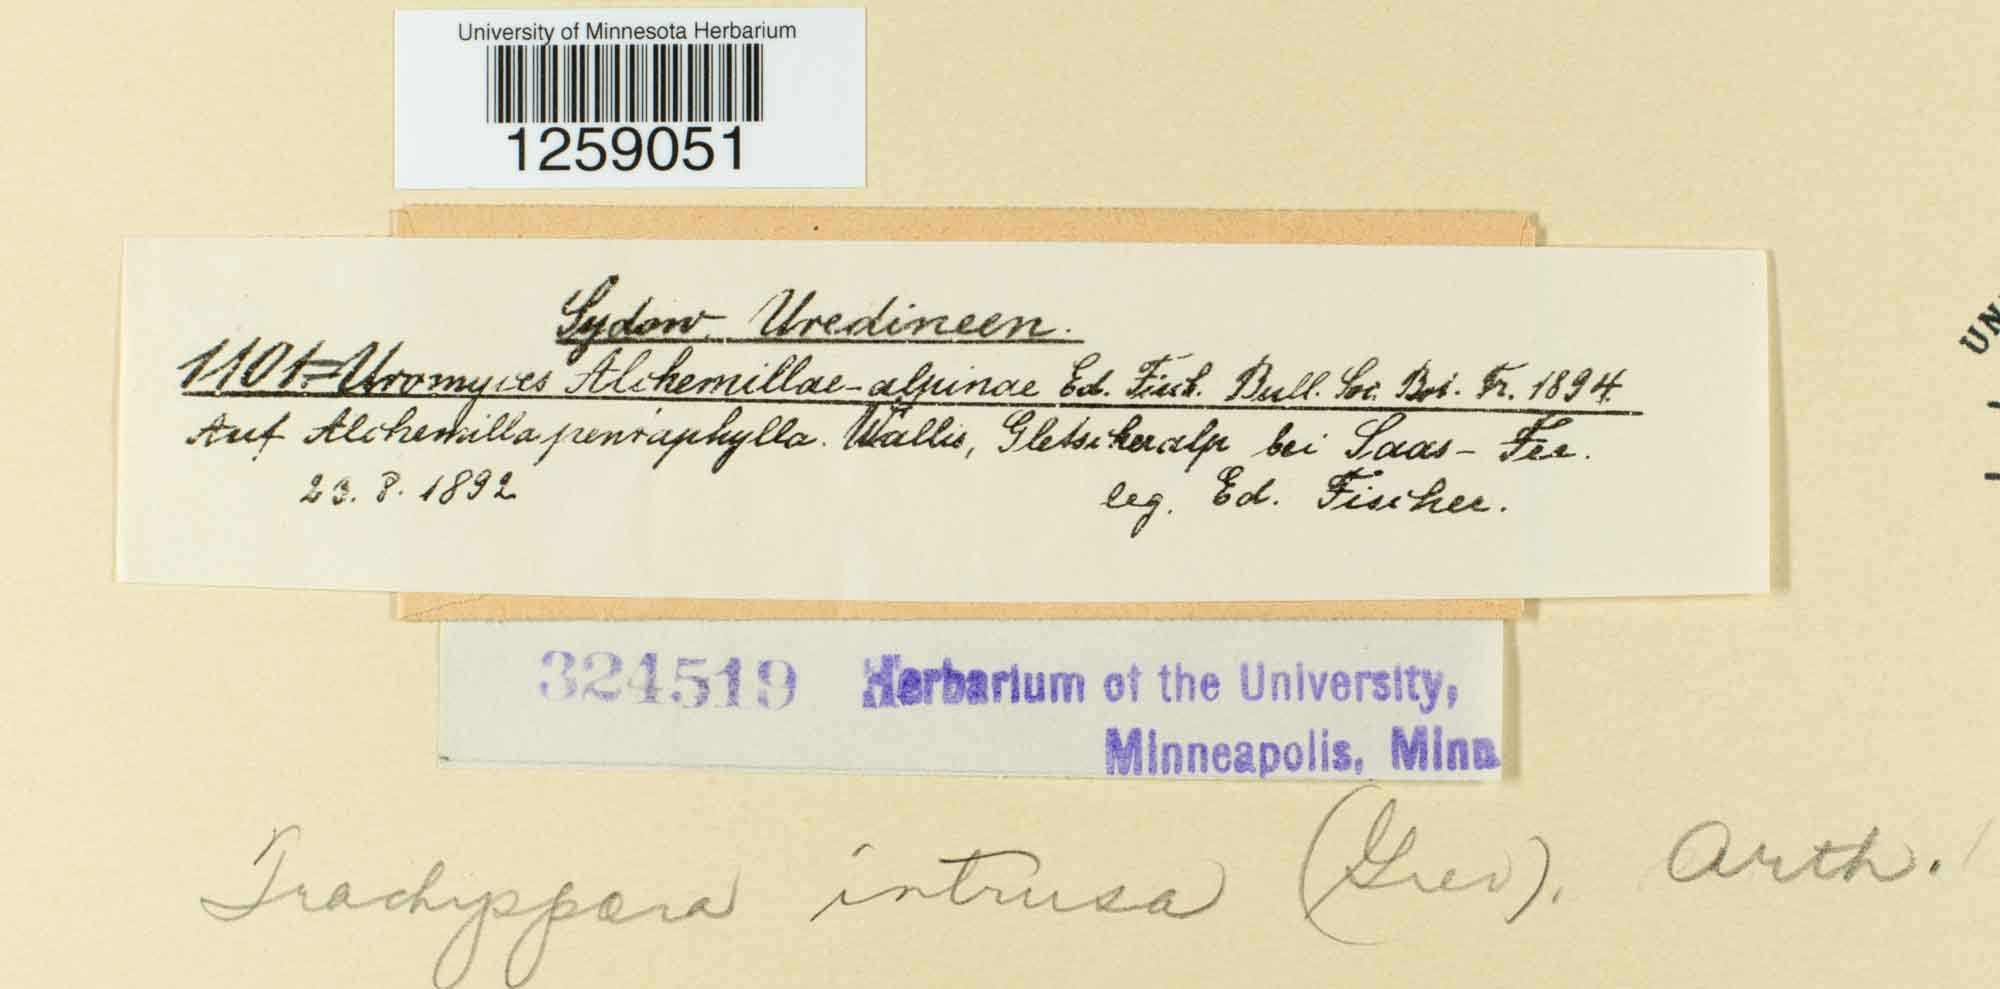 University of Minnesota Herbarium
1259051
Sydow. Uredineen.
1101. Uromyces Alchemillae-alpinae Ed. Fisch. Bull. Soc. Bot. Fr. 1894.
Auf Alchemilla pentaphylla. Wallis, Gletscheralp bei Saas-Fee.
23. 8. 1892
leg. Ed. Fischer.
324519 Herbarium of the University,
Minneapolis, Minn
Trachyspora intrusa (Grev). Arth.
UN